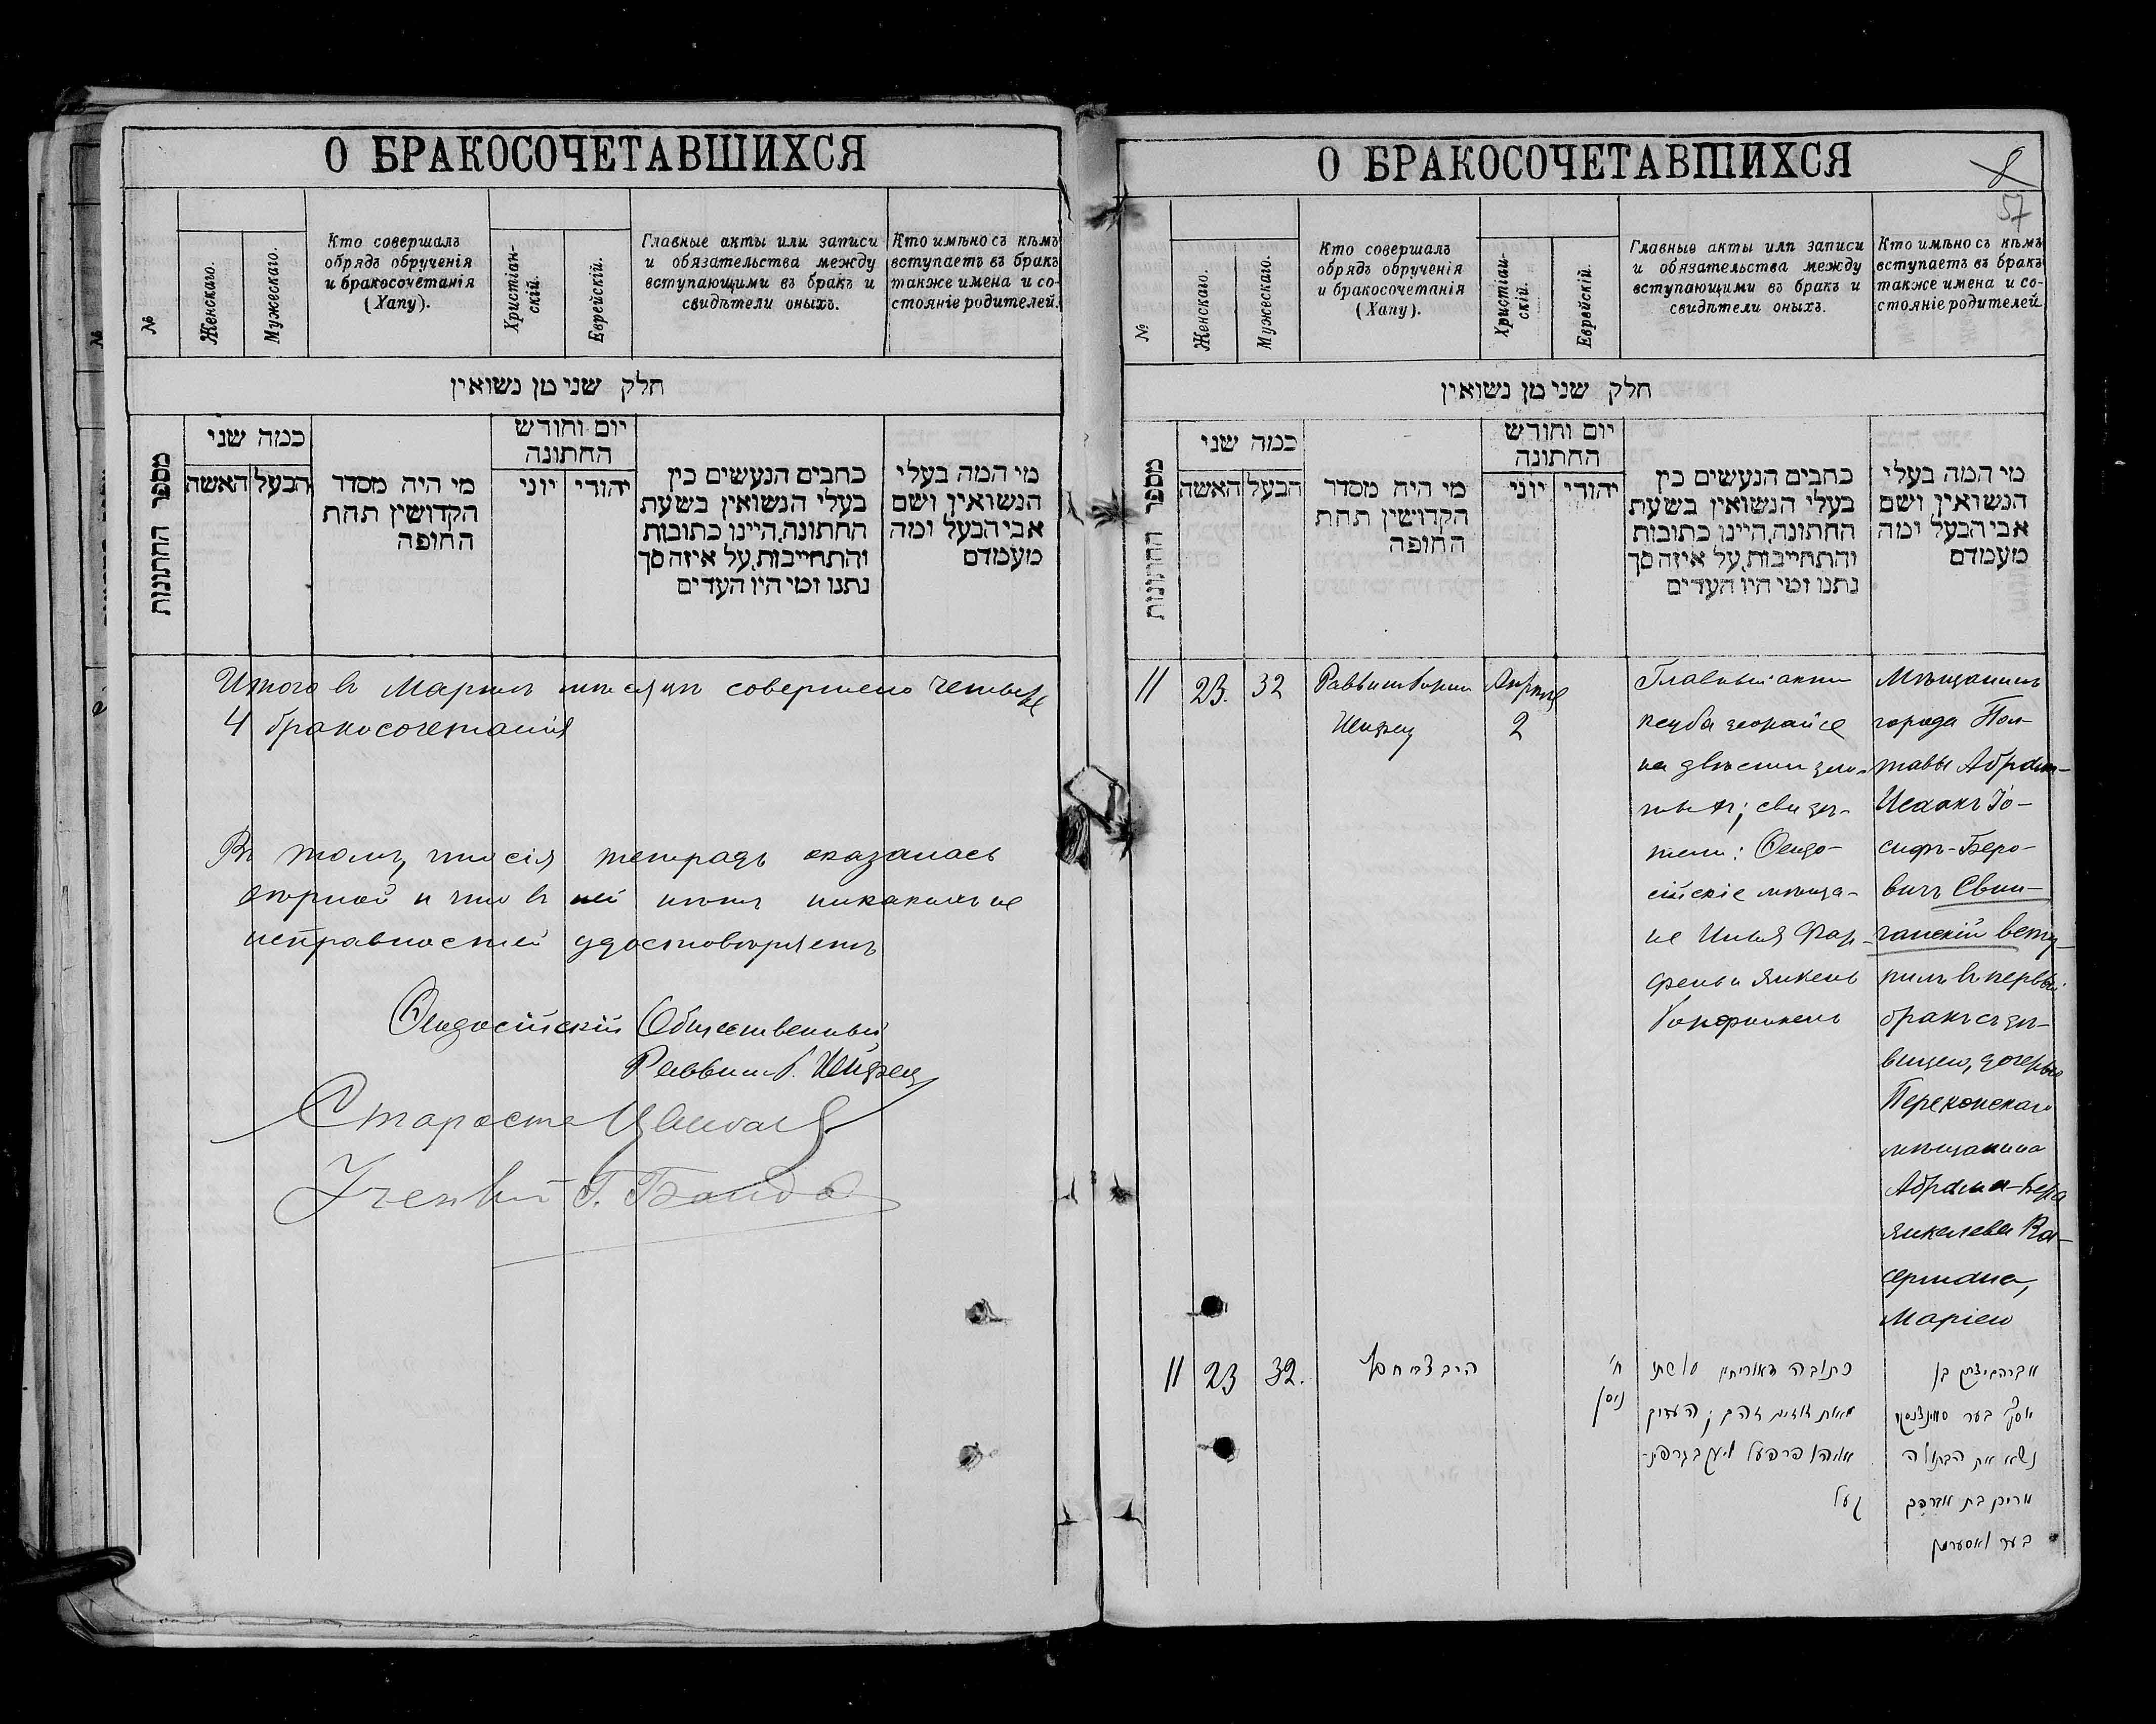 О БРАКОСОЧЕТАВШИХСЯ
№
Женскаго.
Мужескаго.
Кто совершалъ
обрядъ обрученія
и бракосочетанія
(Хапу).
Христіан-
скій.
Еврейскій.
Главные акты или записи
и обязательства между
вступающими въ бракъ и
свидѣтели оныхъ.
Кто имѣно съ кѣмъ
вступаетъ въ бракъ
также имена и со-
стояніе родителей.
חלק שני מן נשואין
מספר החתונות
כמה שני
האשה
הבעל
מי היה מסדר
הקדושין תחת
החופה
יום וחודש
החתונה
יוני
יהודי
כתבים הנעשים בין
בעלי הנשואין בשעת
החתונה, היינו כתובות
והתחייבות, על איזה סך
נתנו ומי היו העדים
מי המה בעלי
הנשואין ושם
אבי הבעל ומה
מעמדם
Итого въ Мартѣ мѣсяцѣ совершено четыре
4 бракосочетанія
Въ томъ, что сія тетрадь оказалась
вѣрной и что въ ней нѣтъ никакихъ не
исправностей удостовѣряетъ
Ѳеодосійскій Общественный
Раввинъ
Староста
О БРАКОСОЧЕТАВШИХСЯ
8
57
№
Женскаго.
Мужескаго.
Кто совершалъ
обрядъ обрученія
и бракосочетанія
(Хапу).
Христіан-
скій.
Еврейскій.
Главные акты или записи
и обязательства между
вступающими въ бракъ и
свидѣтели оныхъ.
Кто имѣно съ кѣмъ
вступаетъ въ бракъ
также имена и со-
стояніе родителей.
חלק שני מן נשואין
מספר החתונות
כמה שני
האשה
הבעל
מי היה מסדר
הקדושין תחת
החופה
יום וחודש
החתונה
יוני
יהודי
כתבים הנעשים בין
בעלי הנשואין בשעת
החתונה, היינו כתובות
והתחייבות, על איזה סך
נתנו ומי היו העדים
מי המה בעלי
הנשואין ושם
אבי הבעל ומה
מעמדם
11
23.
32
Апрѣля
2
Главный актъ
на двѣсти золо-
тыхъ; свидѣ-
тели: Ѳеодо-
сійскіе мѣща-
не
Мѣщанинъ
города Пол-
тавы Абрам-
Исаакъ Іо-
сифъ-Беро-
вичъ Свин-
ранскій всту-
пилъ въ первый
бракъ съ дѣ-
вицею, дочерью
Перекопскаго
мѣщанина
Абрама-Бера
Янкелева Ва-
сермана,
Маріею
11
23
32.
ח'
ניסן
כתובה דאורייתא
מאתים זהב; העדים
אברהם יצחק בן
יוסף בער
נשא את הבתולה
מרים בת אברהם
בער וואסערמן